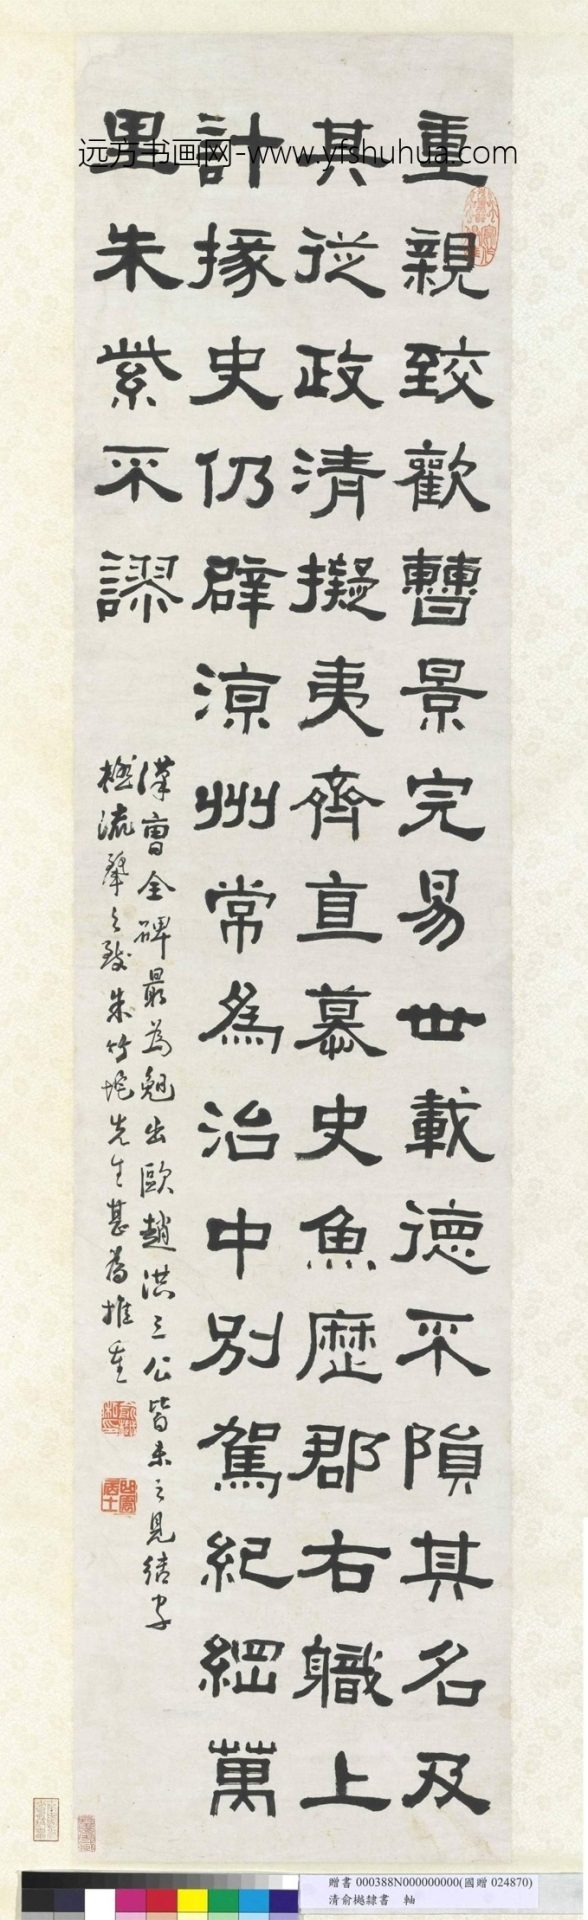 远方书画网-www.yfshuhua.com
重親致歡曹景完易世載德不隕其名及
其從政清擬夷齊直慕史魚歷郡右職上
計掾史仍辟涼州常為治中別駕紀綱萬
里朱紫不謬
漢曹全碑最為
出歐趙洪三公皆未之見結字
流
之致朱竹垞先生甚為推重
贈書 000388N000000000(國贈 024870)
清俞樾隸書 軸